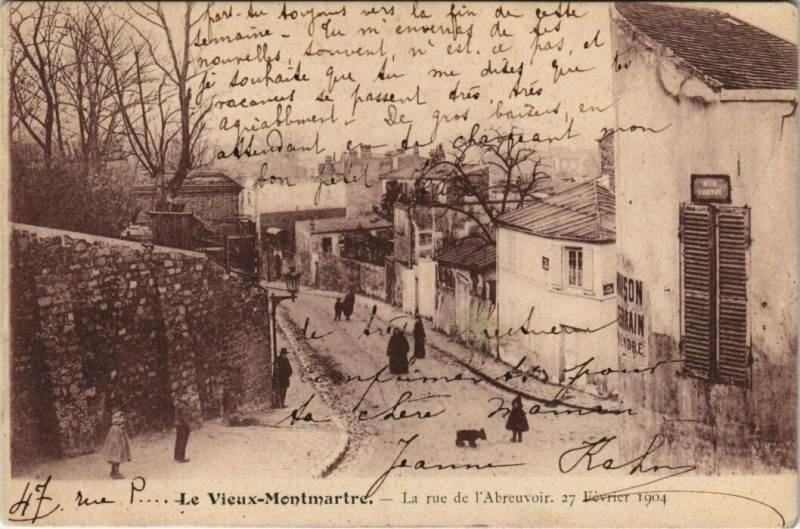 part-tu toujours vers la fin de cette
semaine - Tu m'enverras de tes
nouvelles, souvent, n'est-ce pas, et
je souhaite que tu me dises que tes
vacances se passent très, très
agréablement - De gros baisers, en
attendant de chargeant mon
bon petit
RUE
MAISON
TERRAIN
VENDRE
de très affectueux
pour
ta chère maman
Jeanne Kahn
47, rue P.....
Le Vieux-Montmartre. — La rue de l'Abreuvoir. 27 Février 1904